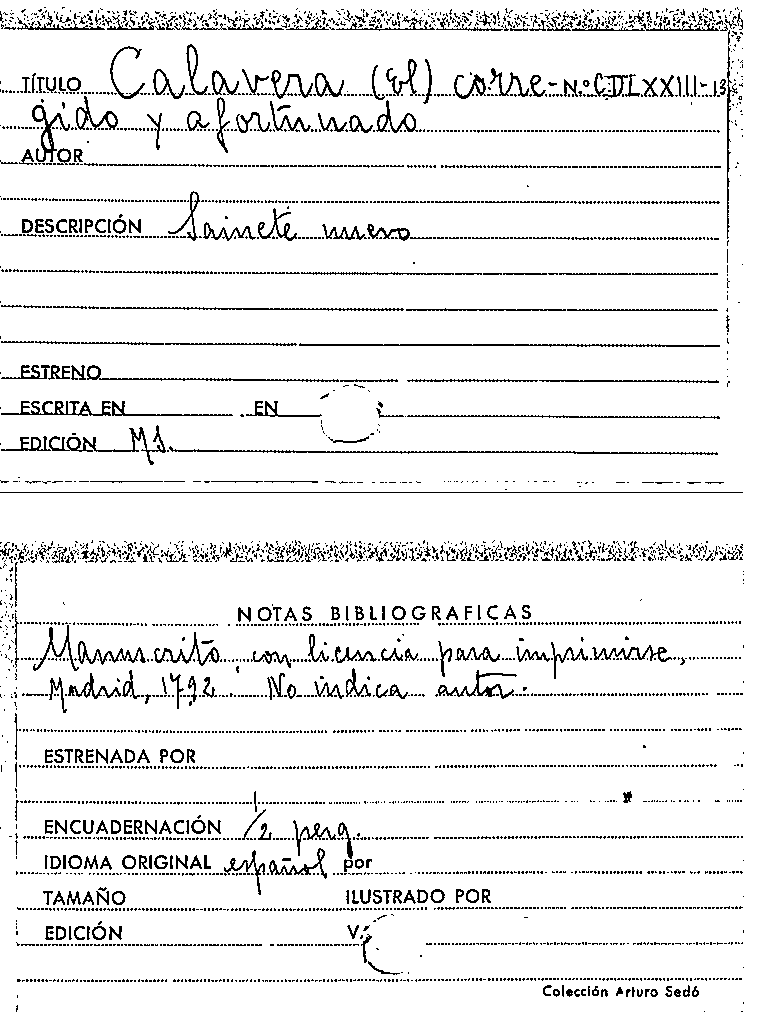 TÍTULO Calavera (El) corre- N.º CDLXXIII-13
gido y afortunado
AUTOR
DESCRIPCIÓN Sainete nuevo
ESTRENO
ESCRITA EN EN
EDICIÓN Ms.
NOTAS BIBLIOGRAFICAS
Manuscrito con licencia para imprimirse,
Madrid, 1792. No indica autor.
ESTRENADA POR
ENCUADERNACIÓN 1/2 perg.
IDIOMA ORIGINAL español por
TAMAÑO ILUSTRADO POR
EDICIÓN
Colección Arturo Sedó